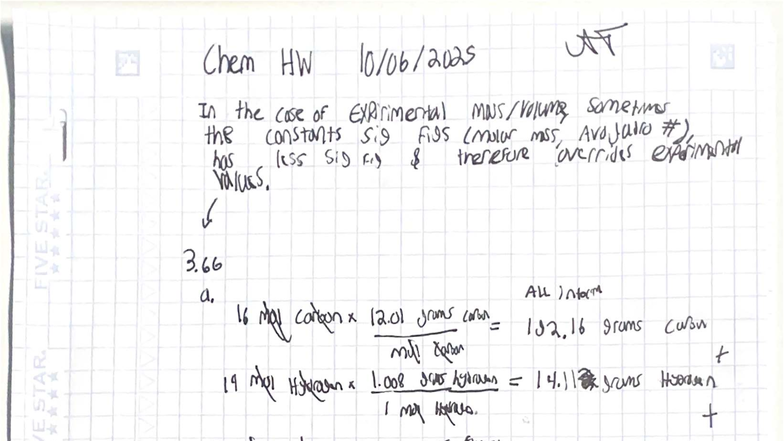 Chem HW 10/06/2025
In the case of Expirimental mass/volume, sometimes
the constants sig figs (molar mass, Avogadro #),
has less sig fig & therefore overrides experimental
values.
3.66
a.
ALL interm
16 mol carbon x 12.01 grams carbon = 192.16 grams carbon
mol carbon
+
14 mol Hydrogen x 1.008 grams hydrogen = 14.112 grams Hydrogen
1 mol Hydrogen.
+
FIVE STAR.
FIVE STAR.